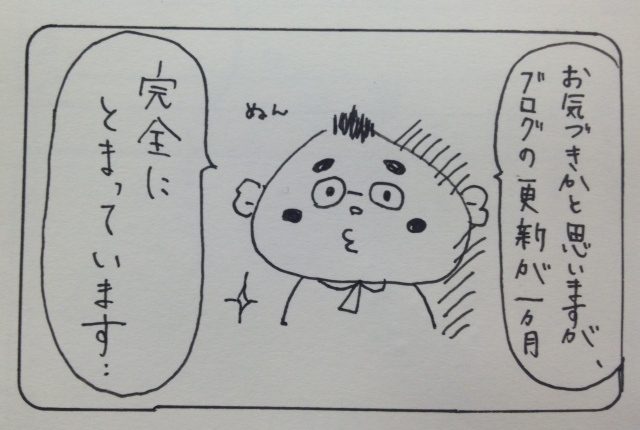 お気づきかと思いますが、
ブログの更新が一ヵ月
ぬん
完全に
とまっています…